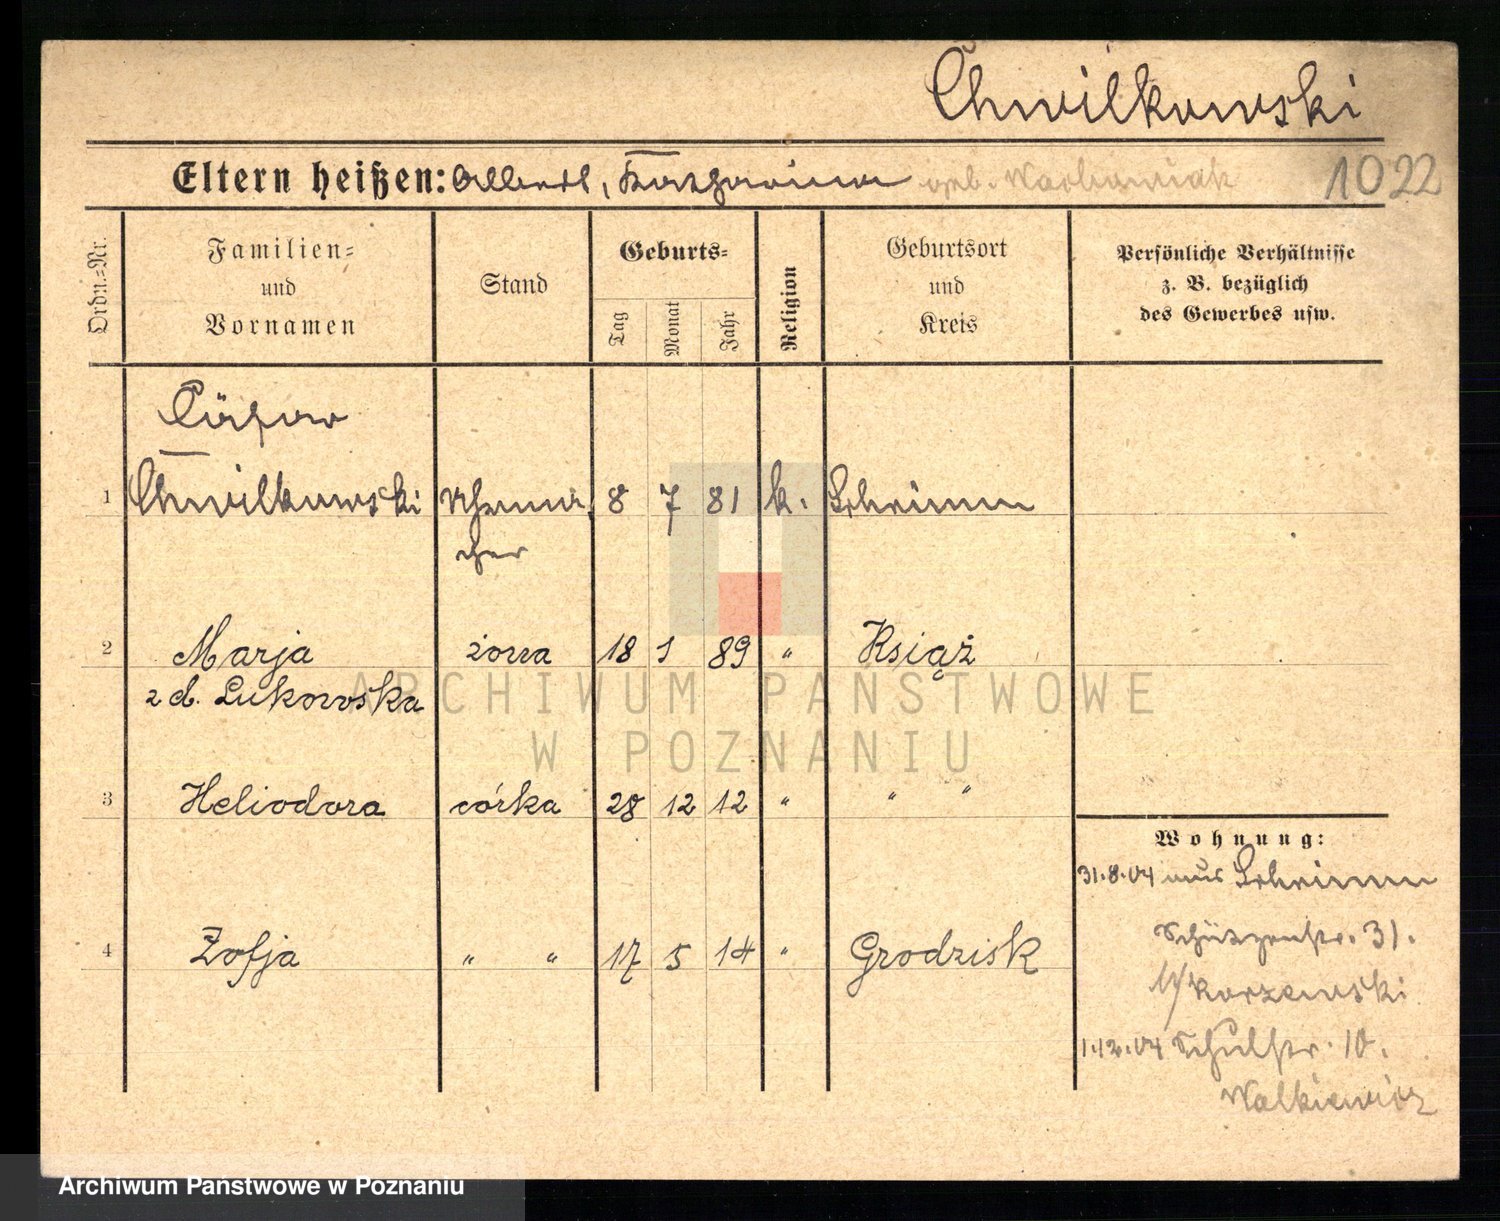 Chwilkowski
Eltern heißen: Albert, Katharina geb. Warbaniak 1022
Ordn.=Nr.
Familien=
und
Vornamen
Stand
Geburts=
Tag
Monat
Jahr
Religion
Geburtsort
und
Kreis
Persönliche Verhältnisse
z. B. bezüglich
des Gewerbes usw.
Cäsar
1 Chwilkowski Uhrma 8 7 81 k. Schrimm
cher
2 Marja żona 18 1 89 " Książ
z d. Lukowska
3 Heliodora córka 28 12 12 " " "
Wohnung:
31.8.04 aus Schrimm
Schützenstr. 31.
4 Zofja " " 17 5 14 " Grodzisk
b/ Korzewski
1.12.04 Schulstr. 10.
Walkiewicz
ARCHIWUM PAŃSTWOWE
W POZNANIU
Archiwum Państwowe w Poznaniu